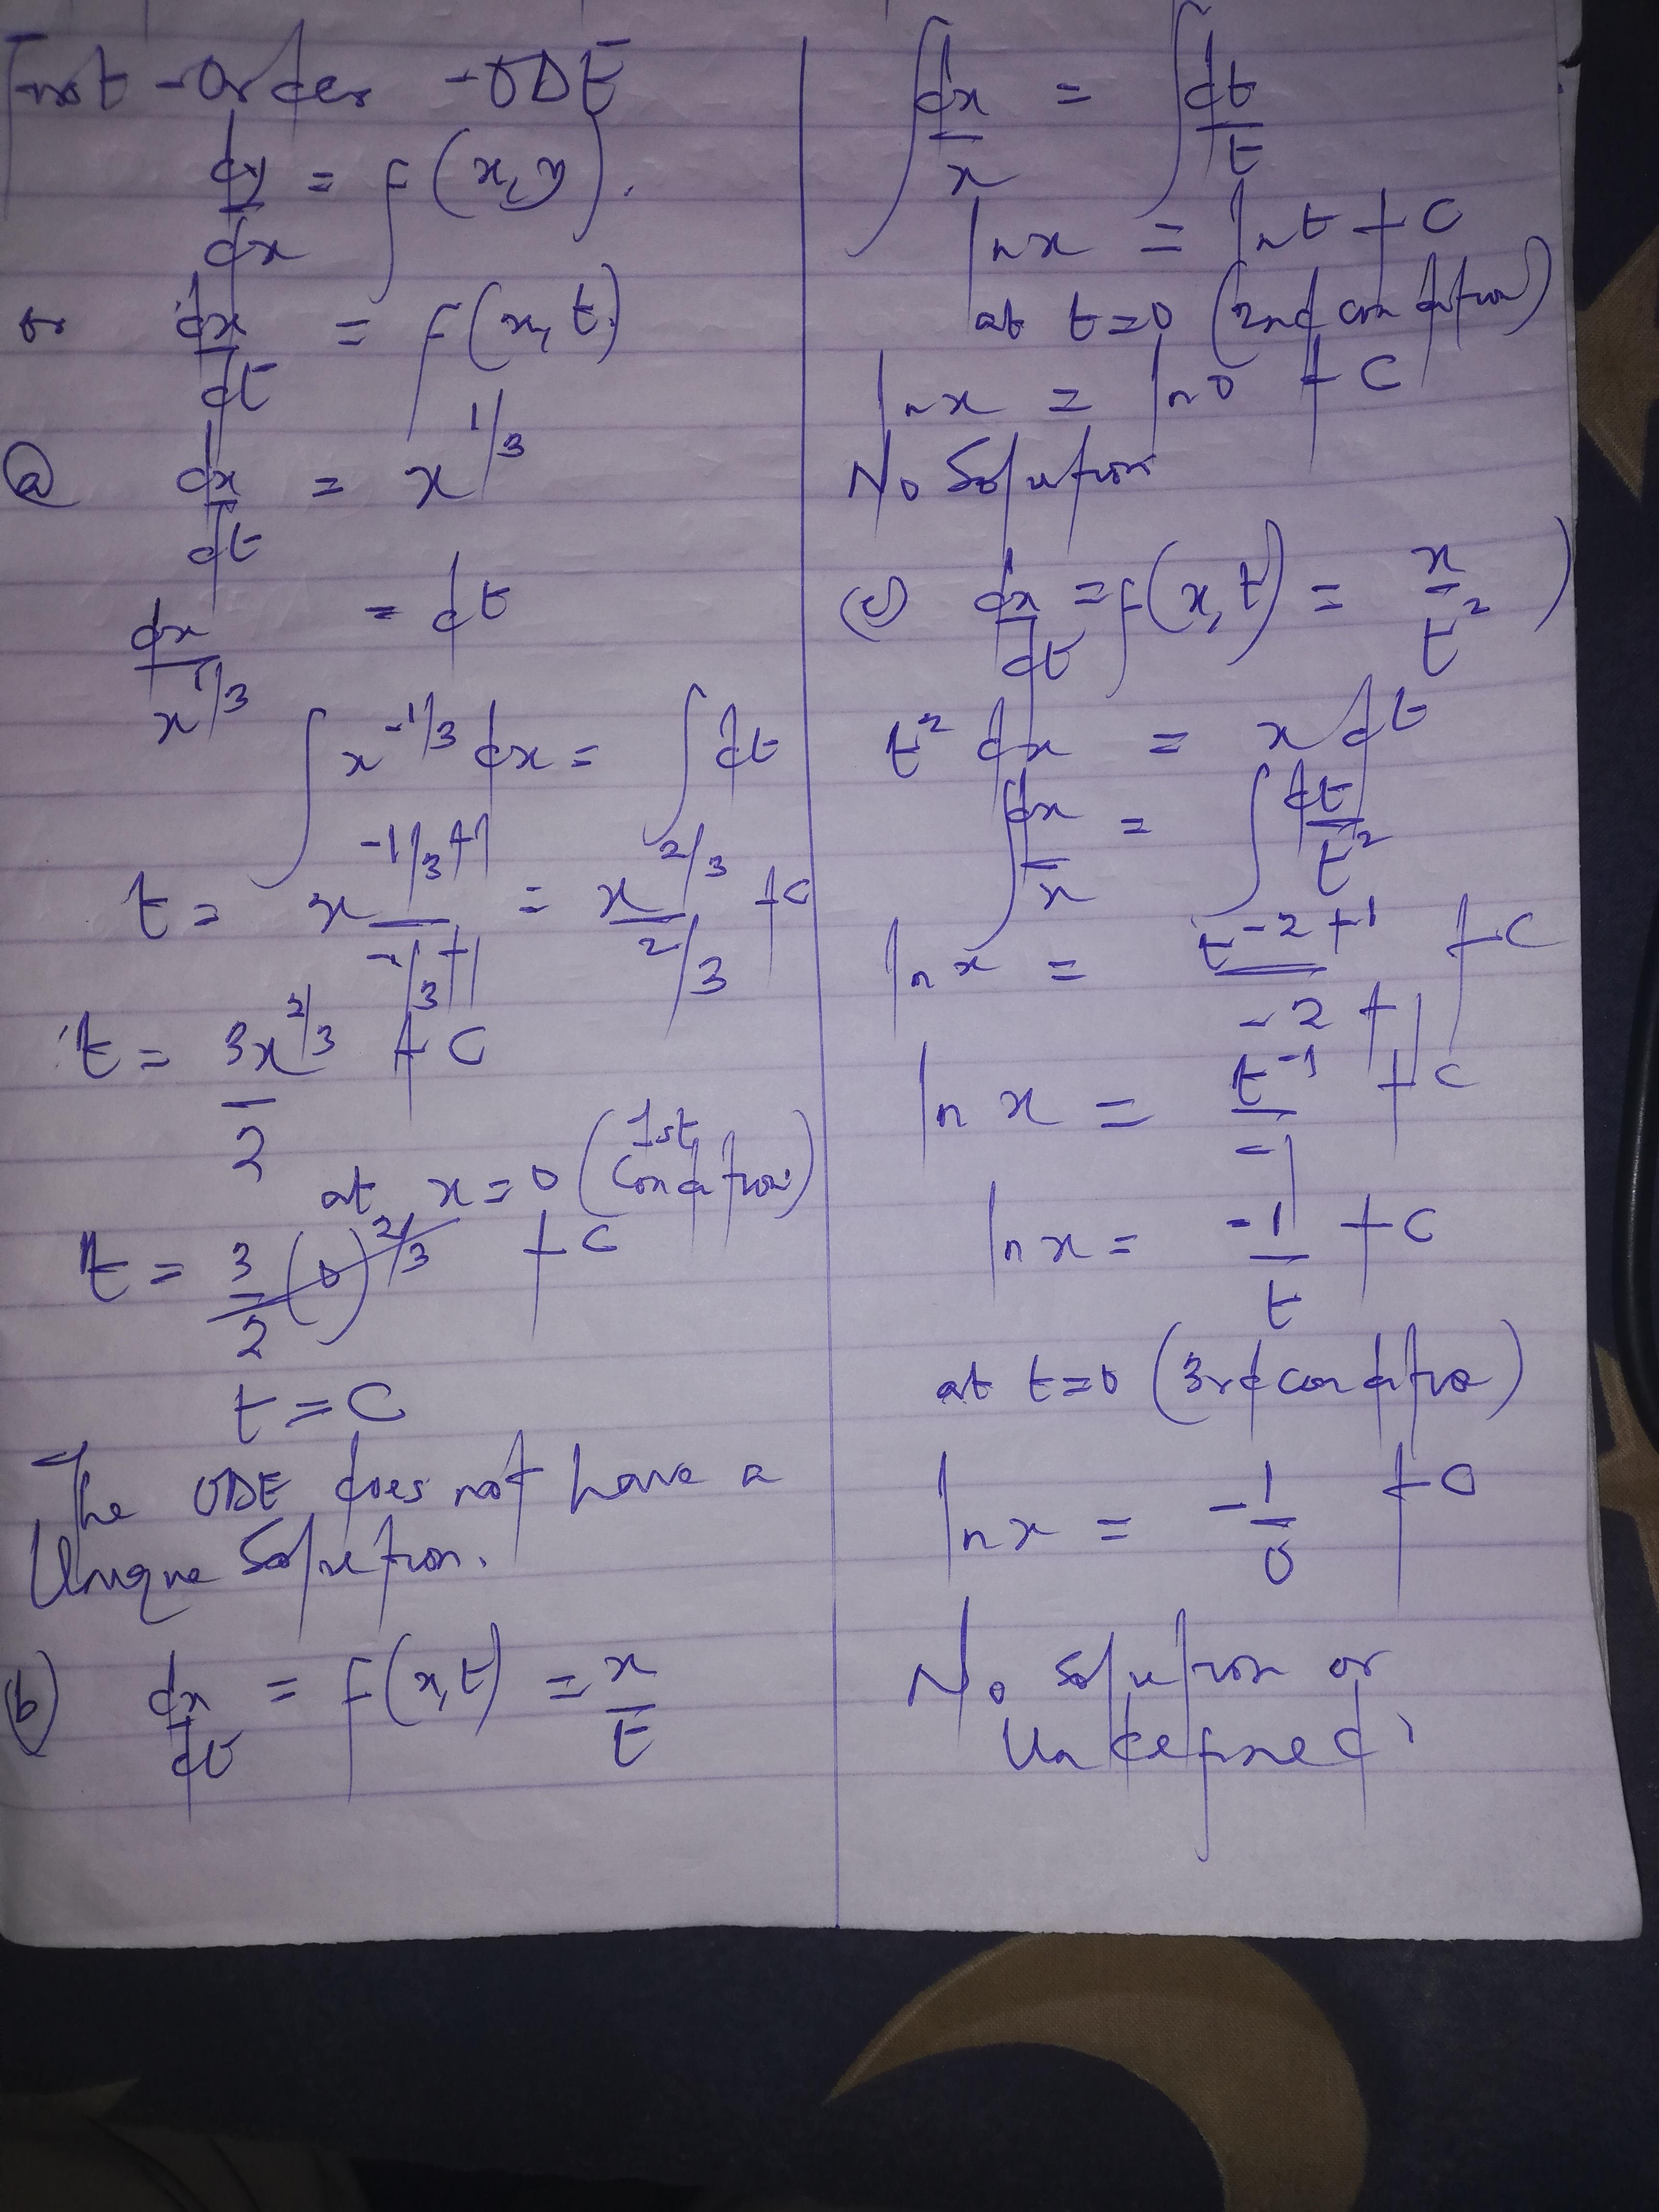 First-Order -ODE
dy/dx = f(x,y).
or dx/dt = f(x,t)
(a) dx/dt = x^1/3
dx/x^1/3 = dt
∫x^-1/3 dx = ∫dt
t = x^-1/3+1/-1/3+1 = x^2/3/2/3 + C
t = 3x^2/3/2 + C
at x=0 (1st condition)
t = 3/2 (0)^2/3 + C
t = C
The ODE does not have a
Unique Solution.
(b) dx/dt = f(x,t) = x/t
∫dx/x = ∫dt/t
ln x = ln t + C
at t=0 (2nd condition)
ln x = ln 0 + C
No Solution
(c) dx/dt = f(x,t) = x/t^2)
t^2 dx = x dt
∫dx/x = ∫dt/t^2
ln x = t^-2+1/-2+1 + C
ln x = t^-1/-1 + C
ln x = -1/t + C
at t=0 (3rd condition)
ln x = -1/0 + C
No solution or
Undefined.